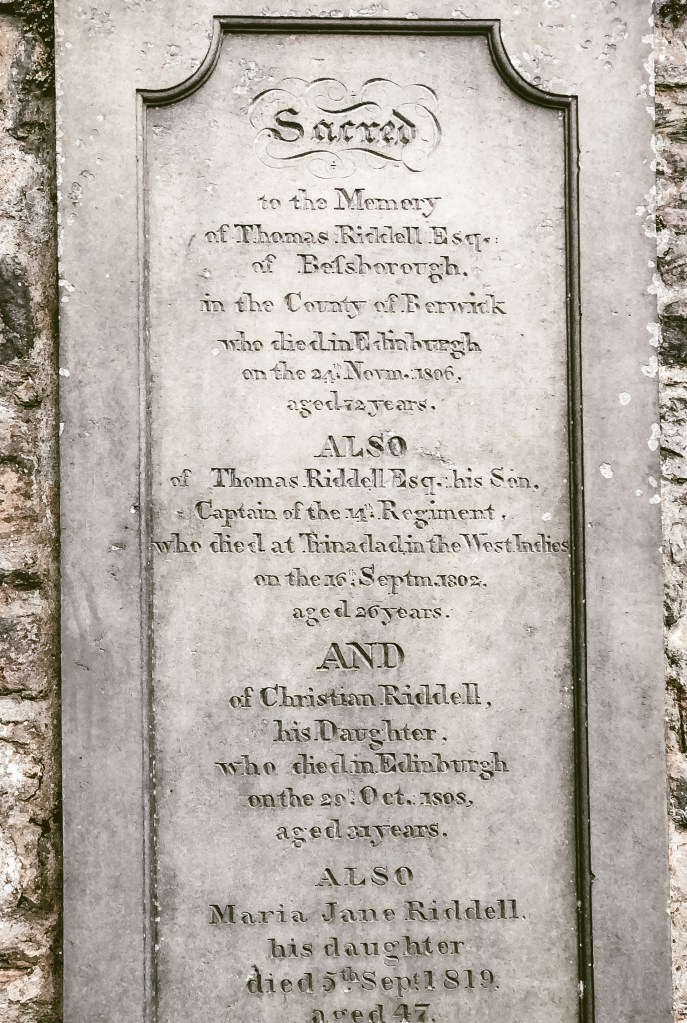 Sacred
to the Memory
of Thomas Riddell Esq.
of Beſsborough,
in the County of Berwick
who died in Edinburgh
on the 24th Novm. 1806,
aged 72 years.
ALSO
of Thomas Riddell Esq. his Son,
Captain of the 14th Regiment,
who died at Trinadad, in the West Indies
on the 16th Septm. 1802,
aged 26 years.
AND
of Christian Riddell,
his Daughter,
who died in Edinburgh
on the Oct. 1808,
aged 31 years.
ALSO
Maria Jane Riddell,
his daughter
died 5th Sept. 1819.
aged 47.